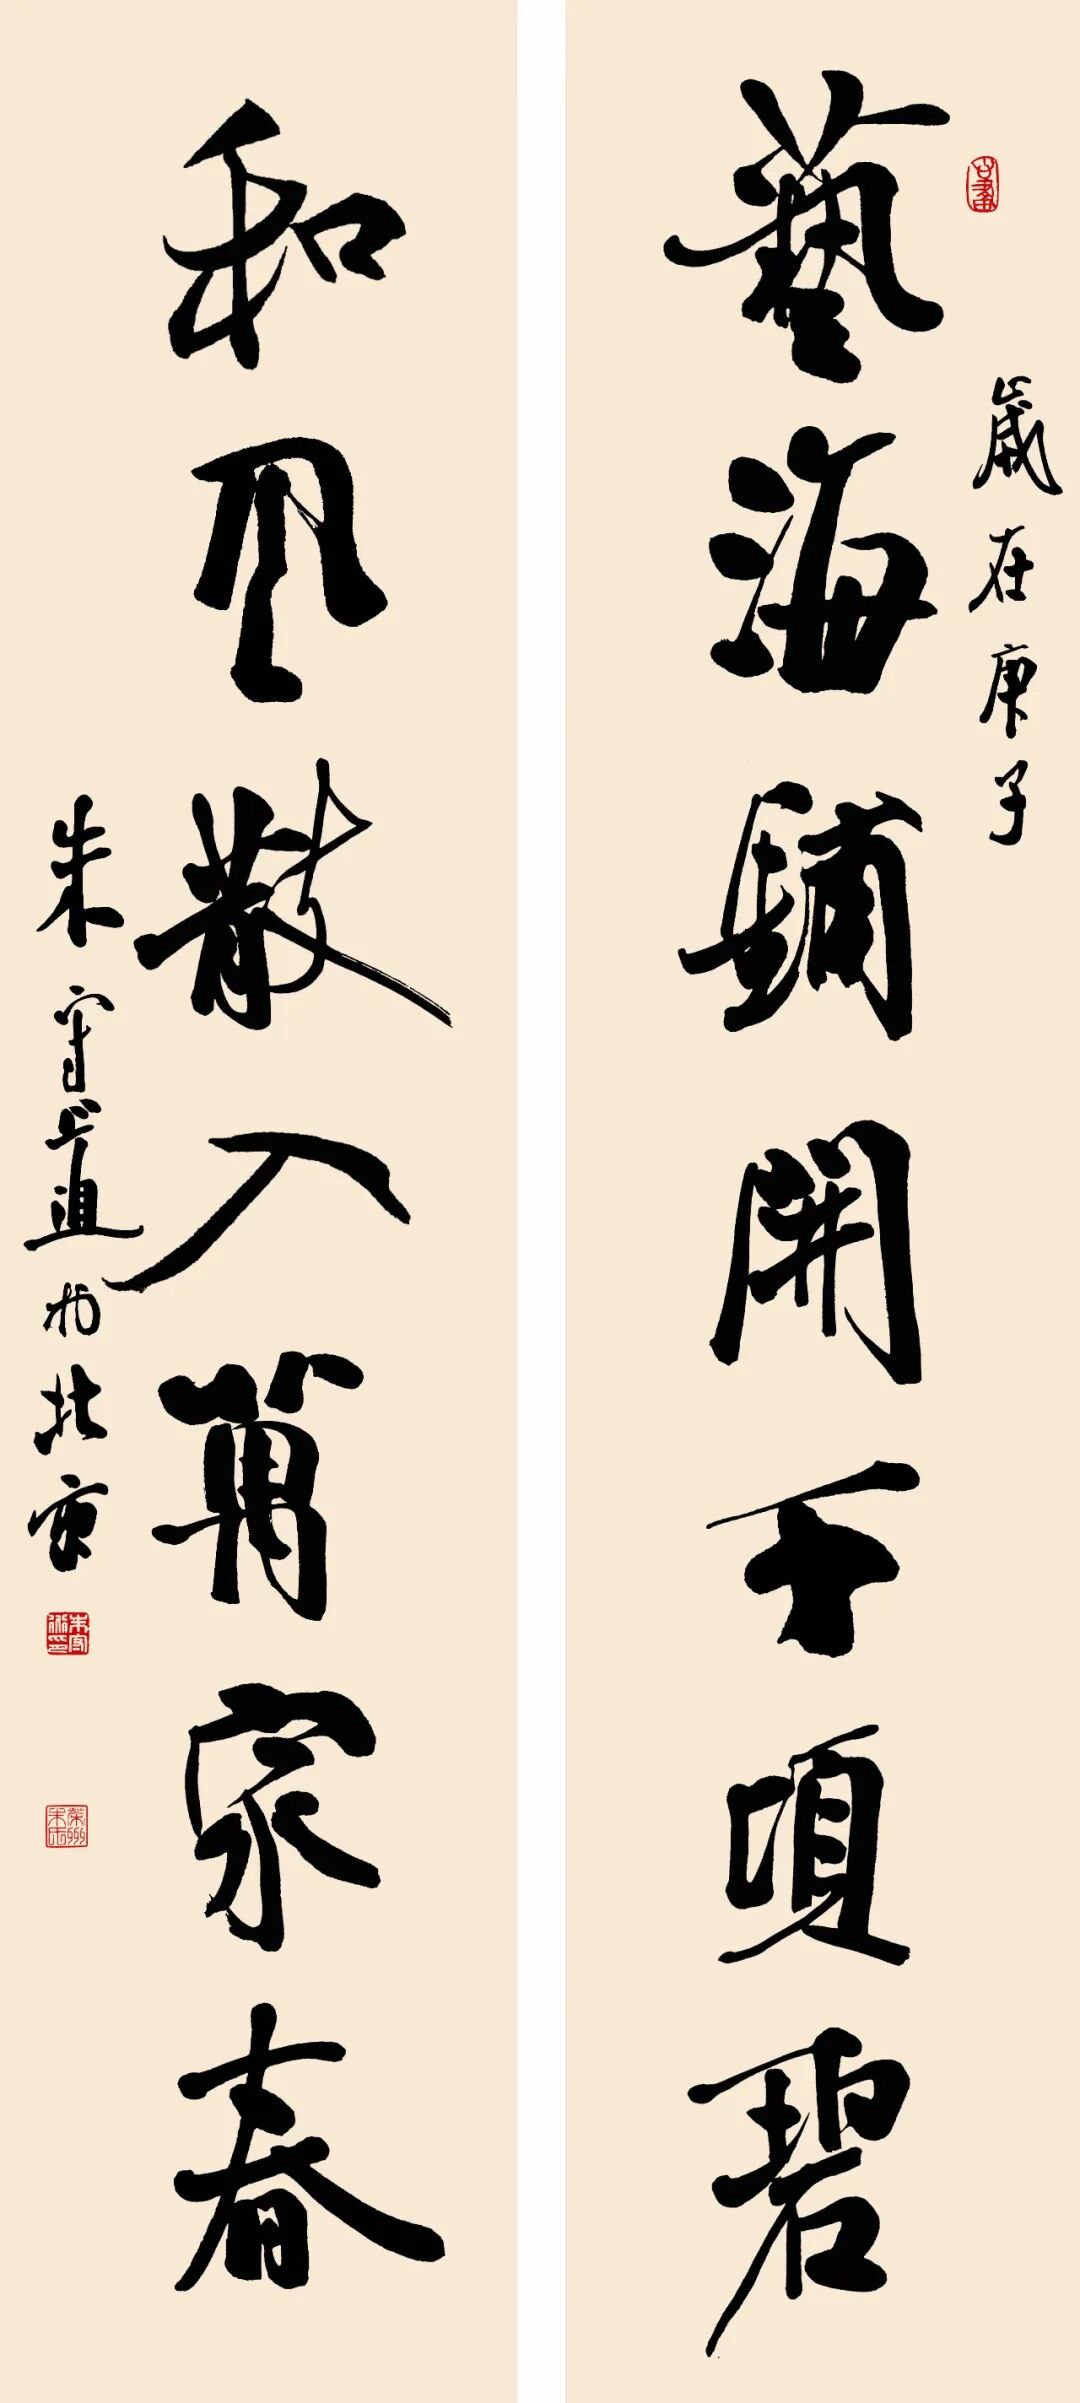 歲在庚子
藝海鋪開千頃碧
和风散入萬家春
朱守道於北京